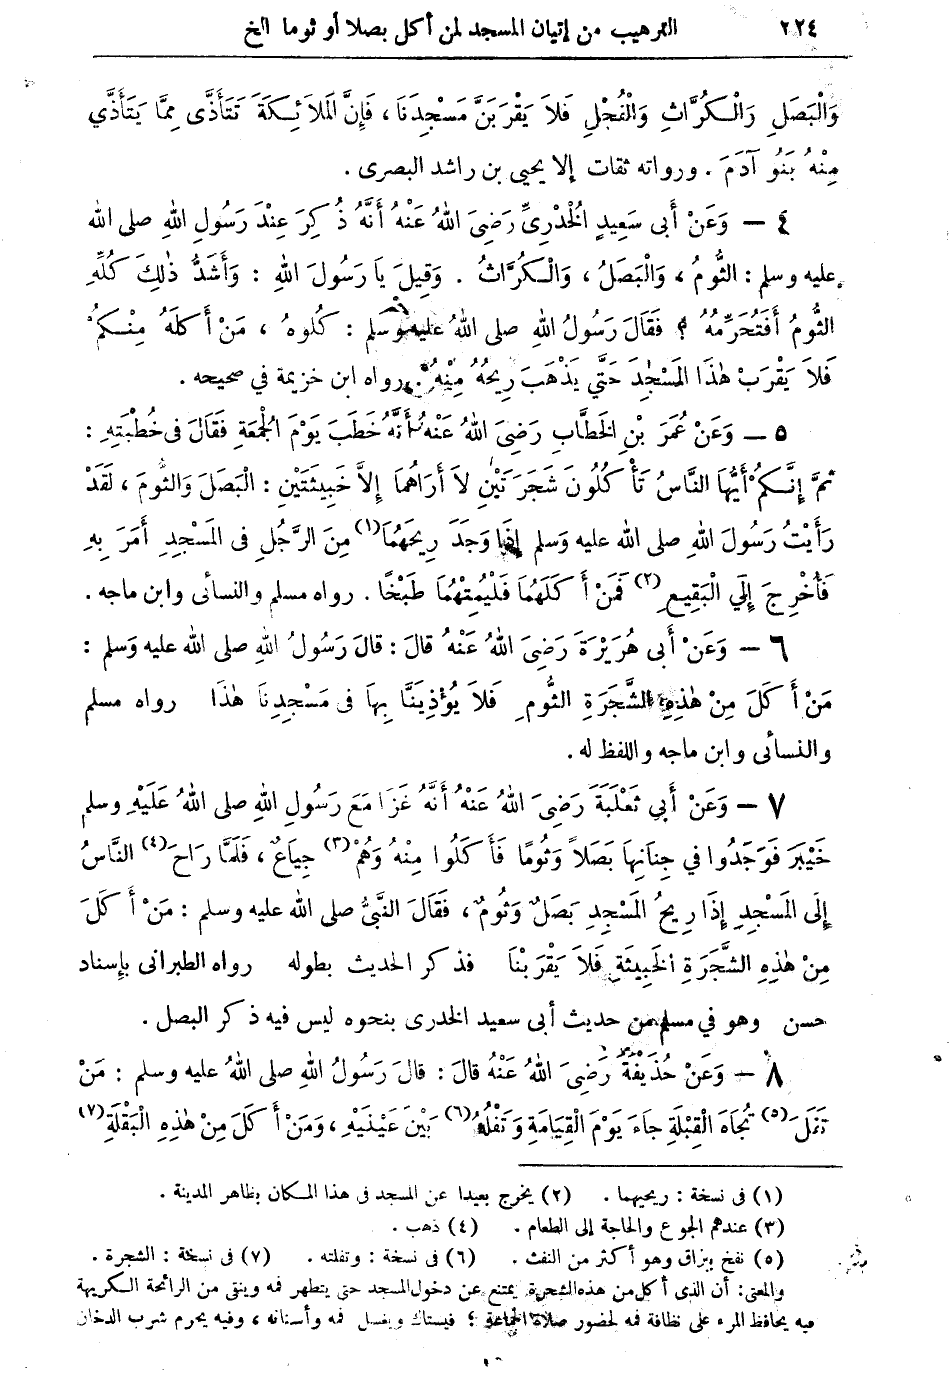 ٢٢٤ الترهيب من إتيان المسجد لمن أكل بصلا أو ثوما الخ
وَالْبَصَلِ وَالْكُرَّاثِ وَالْفُجْلِ فَلاَ يَقْرَبَنَّ مَسْجِدَنَا، فَإِنَّ الْمَلاَئِكَةَ تَتَأَذَّى مِمَّا يَتَأَذَّي
مِنْهُ بَنُو آدَمَ. ورواته ثقات إلا يحيى بن راشد البصرى.
٤ – وَعَنْ أَبى سَعِيدٍ الْخُدْرِىِّ رَضِىَ اللهُ عَنْهُ أَنَّهُ ذُكِرَ عِنْدَ رَسُولِ اللهِ صلى الله
عليه وسلم: الثُّومُ، وَالْبَصَلُ، وَالْكُرَّاثُ. وَقِيلَ يَا رَسُولَ اللهِ: وَأَشَدُّ ذٰلِكَ كُلِّهِ
الثُّومُ أَفَتُحَرِّمُهُ؟ فَقَالَ رَسُولُ اللهِ صلى اللهُ عليه وسلم: كُلُوهُ، مَنْ أَكَلَهُ مِنْكُمْ
فَلاَ يَقْرَبْ هٰذَا الْمَسْجِدَ حَتَّي يَذْهَبَ رِيحُهُ مِنْهُ. رواه ابن خزيمة في صحيحه.
٥ – وَعَنْ عُمَرَ بْنِ الْخَطَّابِ رَضِىَ اللهُ عَنْهُ أَنَّهُ خَطَبَ يَوْمَ الْجُمَعَةِ فَقَالَ فى خُطْبَتِهِ:
ثمَّ إِنَّكمُ أَيُّهَا النَّاسُ تَأْكُلُونَ شَجَرَتَيْنِ لاَ أَرَاهُمَا إِلاَّ خَبِيثَتَيْنِ: الْبَصَلَ وَالثُّومَ، لَقَدْ
رَأَيْتُ رَسُولَ اللهِ صلى الله عليه وَسلم إِذَا وَجَدَ رِيحَهُمَا (١) مِنَ الرَّجُلِ فى الْمَسْجِدِ أَمَرَ بِهِ
فَأُخْرِجَ إِلَي الْبَقِيعِ (٢) فَمَنْ أَكَلَهُمَا فَلْيُمِتْهُمَا طَبْخًا. رواه مسلم والنسائى وابن ماجه.
٦ – وَعَنْ أَبى هُرَيْرَةَ رَضِىَ اللهُ عَنْهُ قالَ: قالَ رَسُولُ اللهِ صلى الله عليه وَسلم:
مَنْ أَكَلَ مِنْ هٰذِهِ الشَّجَرَةِ الثُّومِ فَلاَ يُؤْذِيَنَّا بِهَا فى مَسْجِدِنَا هٰذَا رواه مسلم
والنسائى وابن ماجه واللفظ له.
٧ – وَعَنْ أَبي ثَعْلَبَةَ رَضِىَ اللهُ عَنْهُ أَنَّهُ غَزَا مَعَ رَسُولِ اللهِ صلى اللهُ عَلَيْهِ وسلم
خَيْبَرَ فَوَجَدُوا في جِنَانِهَا بَصَلاً وَثُومًا فَأَكَلُوا مِنْهُ وَهُمْ (٣) جِيَاعٌ، فَلَمَّا رَاحَ (٤) النَّاسُ
إِلَى الْمَسْجِدِ إِذَا رِيحُ الْمَسْجِدِ بَصَلٌ وَثُومٌ، فَقَالَ النَّبىُّ صلى الله عليه وسلم: مَنْ أَكَلَ
مِنْ هٰذِهِ الشَّجَرَةِ الْخَبِيثَةِ فَلاَ يَقْرَبْنَا فذكر الحديث بطوله رواه الطبرانى بإسناد
حسن وهو في مسلم من حديث أبى سعيد الخدرى بنحوه ليس فيه ذكر البصل.
٨ – وَعَنْ حُذَيْفَةَ رَضِىَ اللهُ عَنْهُ قالَ: قالَ رَسُولُ اللهِ صلى اللهُ عليه وسلم: مَنْ
تَفَلَ (٥) تُجَاهَ الْقِبْلَةِ جَاءَ يَوْمَ الْقِيَامَةِ وَتَفْلُهُ (٦) بَيْنَ عَيْنَيْهِ، وَمَنْ أَكَلَ مِنْ هٰذِهِ الْبَقْلَةِ (٧)
(١) فى نسخة: ريحيهما. (٢) يخرج بعيدا عن المسجد فى هذا المكان بظاهر المدينة.
(٣) عندهم الجوع والحاجة إلى الطعام. (٤) ذهب.
(٥) نفخ ببزاق وهو أكثر من النفث. (٦) فى نسخة: وتفلته. (٧) فى نسخة: الشجرة.
والمعنى: أن الذى أكل من هذه الشجرة يمتنع عن دخول المسجد حتى يتطهر فمه وينتى من الرائحة الكريهة
فيه يحافظ المرء على نظافة فمه لحضور صلاة الجماعة؛ فيستاك ويغسل فمه وأسنانه، وفيه يحرم شرب الدخان